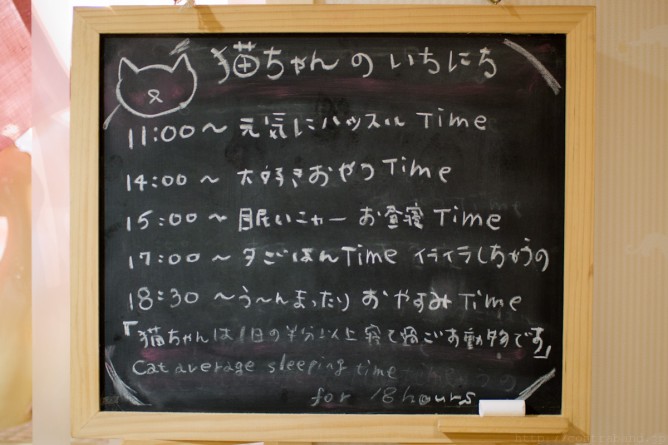 猫ちゃんのいちにち
11:00〜 元気にハッスル Time
14:00〜 大好きおやつ Time
15:00〜 眠いニャー お昼寝 Time
17:00〜 夕ごはんTime イライラしちゃうの
18:30〜う〜んまったり おやすみ Time
「猫ちゃんは1日の半分以上寝て過ごす動物です」
Cat average sleeping time
for 18hours